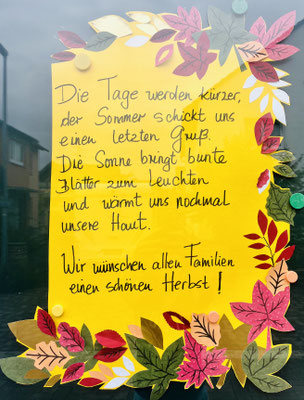 Die Tage werden kürzer,
der Sommer schickt uns
einen letzten Gruß.
Die Sonne bringt bunte
Blätter zum Leuchten
und wärmt uns nochmal
unsere Haut.
Wir wünschen allen Familien
einen schönen Herbst!